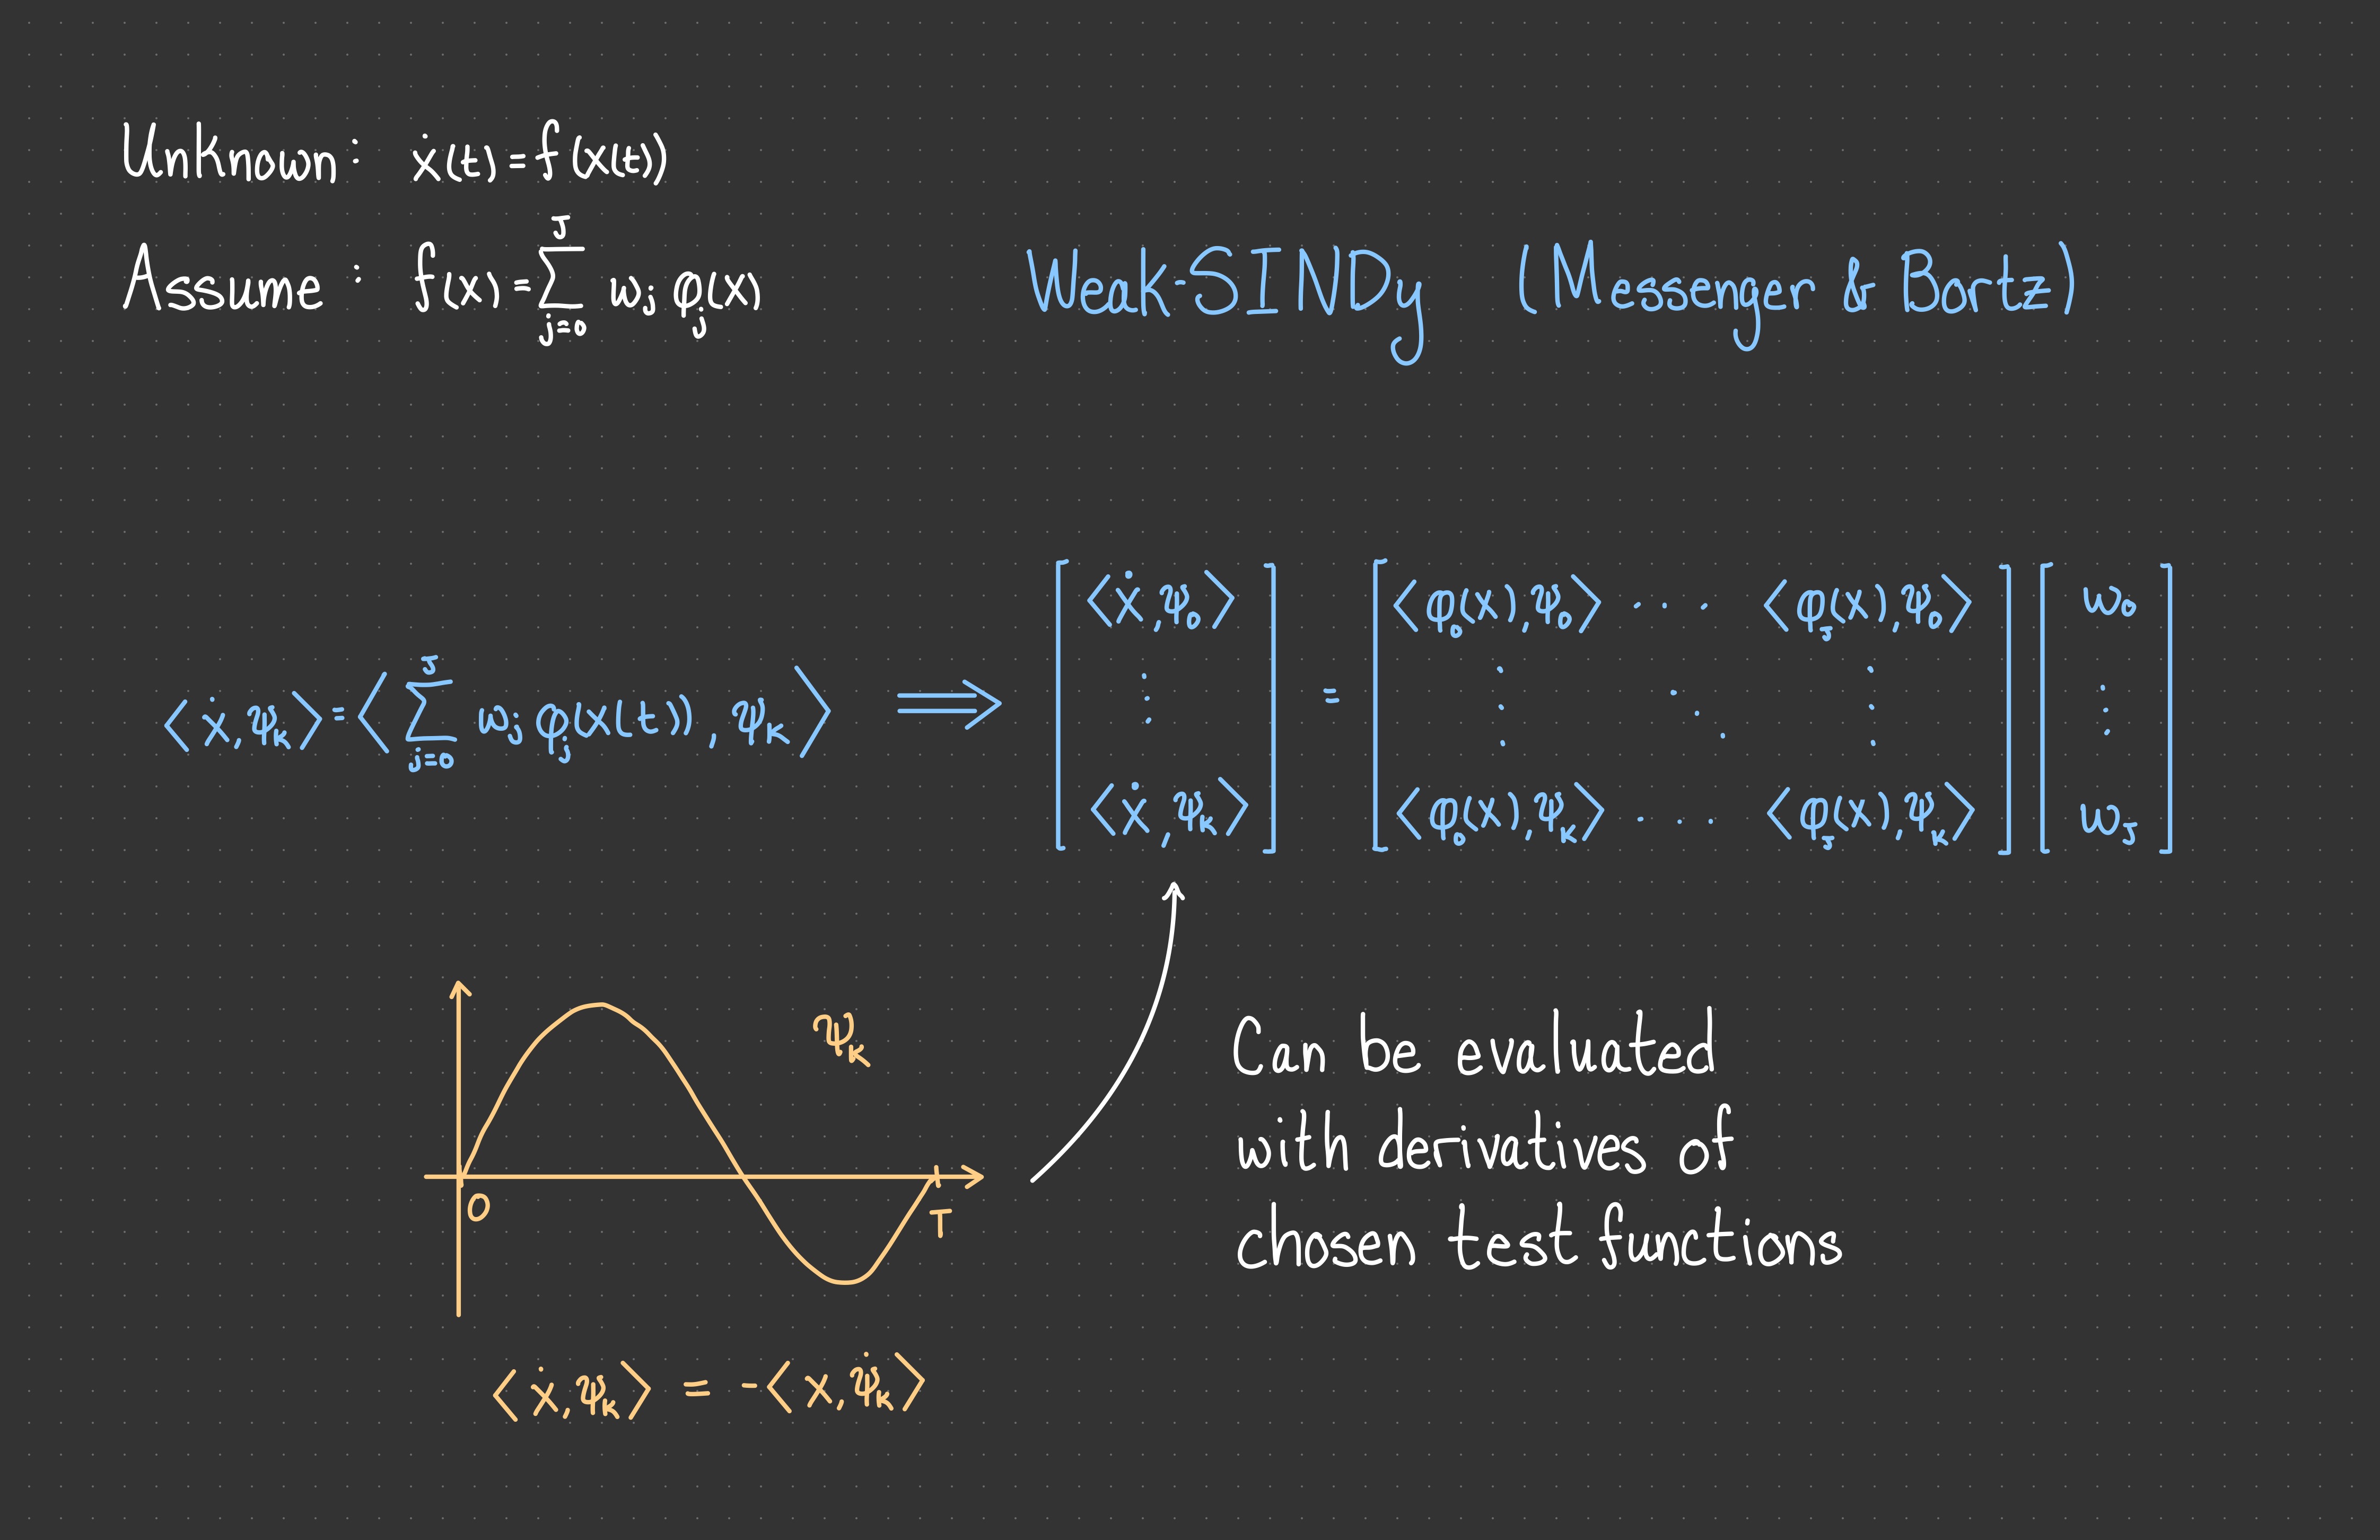 Unknown: ẋ(t) = f(x(t))
Assume: f(x) = ∑_{j=0}^{J} w_j φ_j(x)
Weak-SINDy (Messenger & Bortz)
⟨ẋ, ψ_k⟩ = ⟨∑_{j=0}^{J} w_j φ_j(x(t)), ψ_k⟩ ⟹ [⟨ẋ, ψ_0⟩ ⋮ ⟨ẋ, ψ_K⟩] = [⟨φ_0(x), ψ_0⟩ ⋯ ⟨φ_J(x), ψ_0⟩ ⋮ ⋱ ⋮ ⟨φ_0(x), ψ_K⟩ ⋯ ⟨φ_J(x), ψ_K⟩] [w_0 ⋮ w_J]
ψ_k
0
T
⟨ẋ, ψ_k⟩ = -⟨x, ψ̇_k⟩
Can be evaluated
with derivatives of
chosen test functions